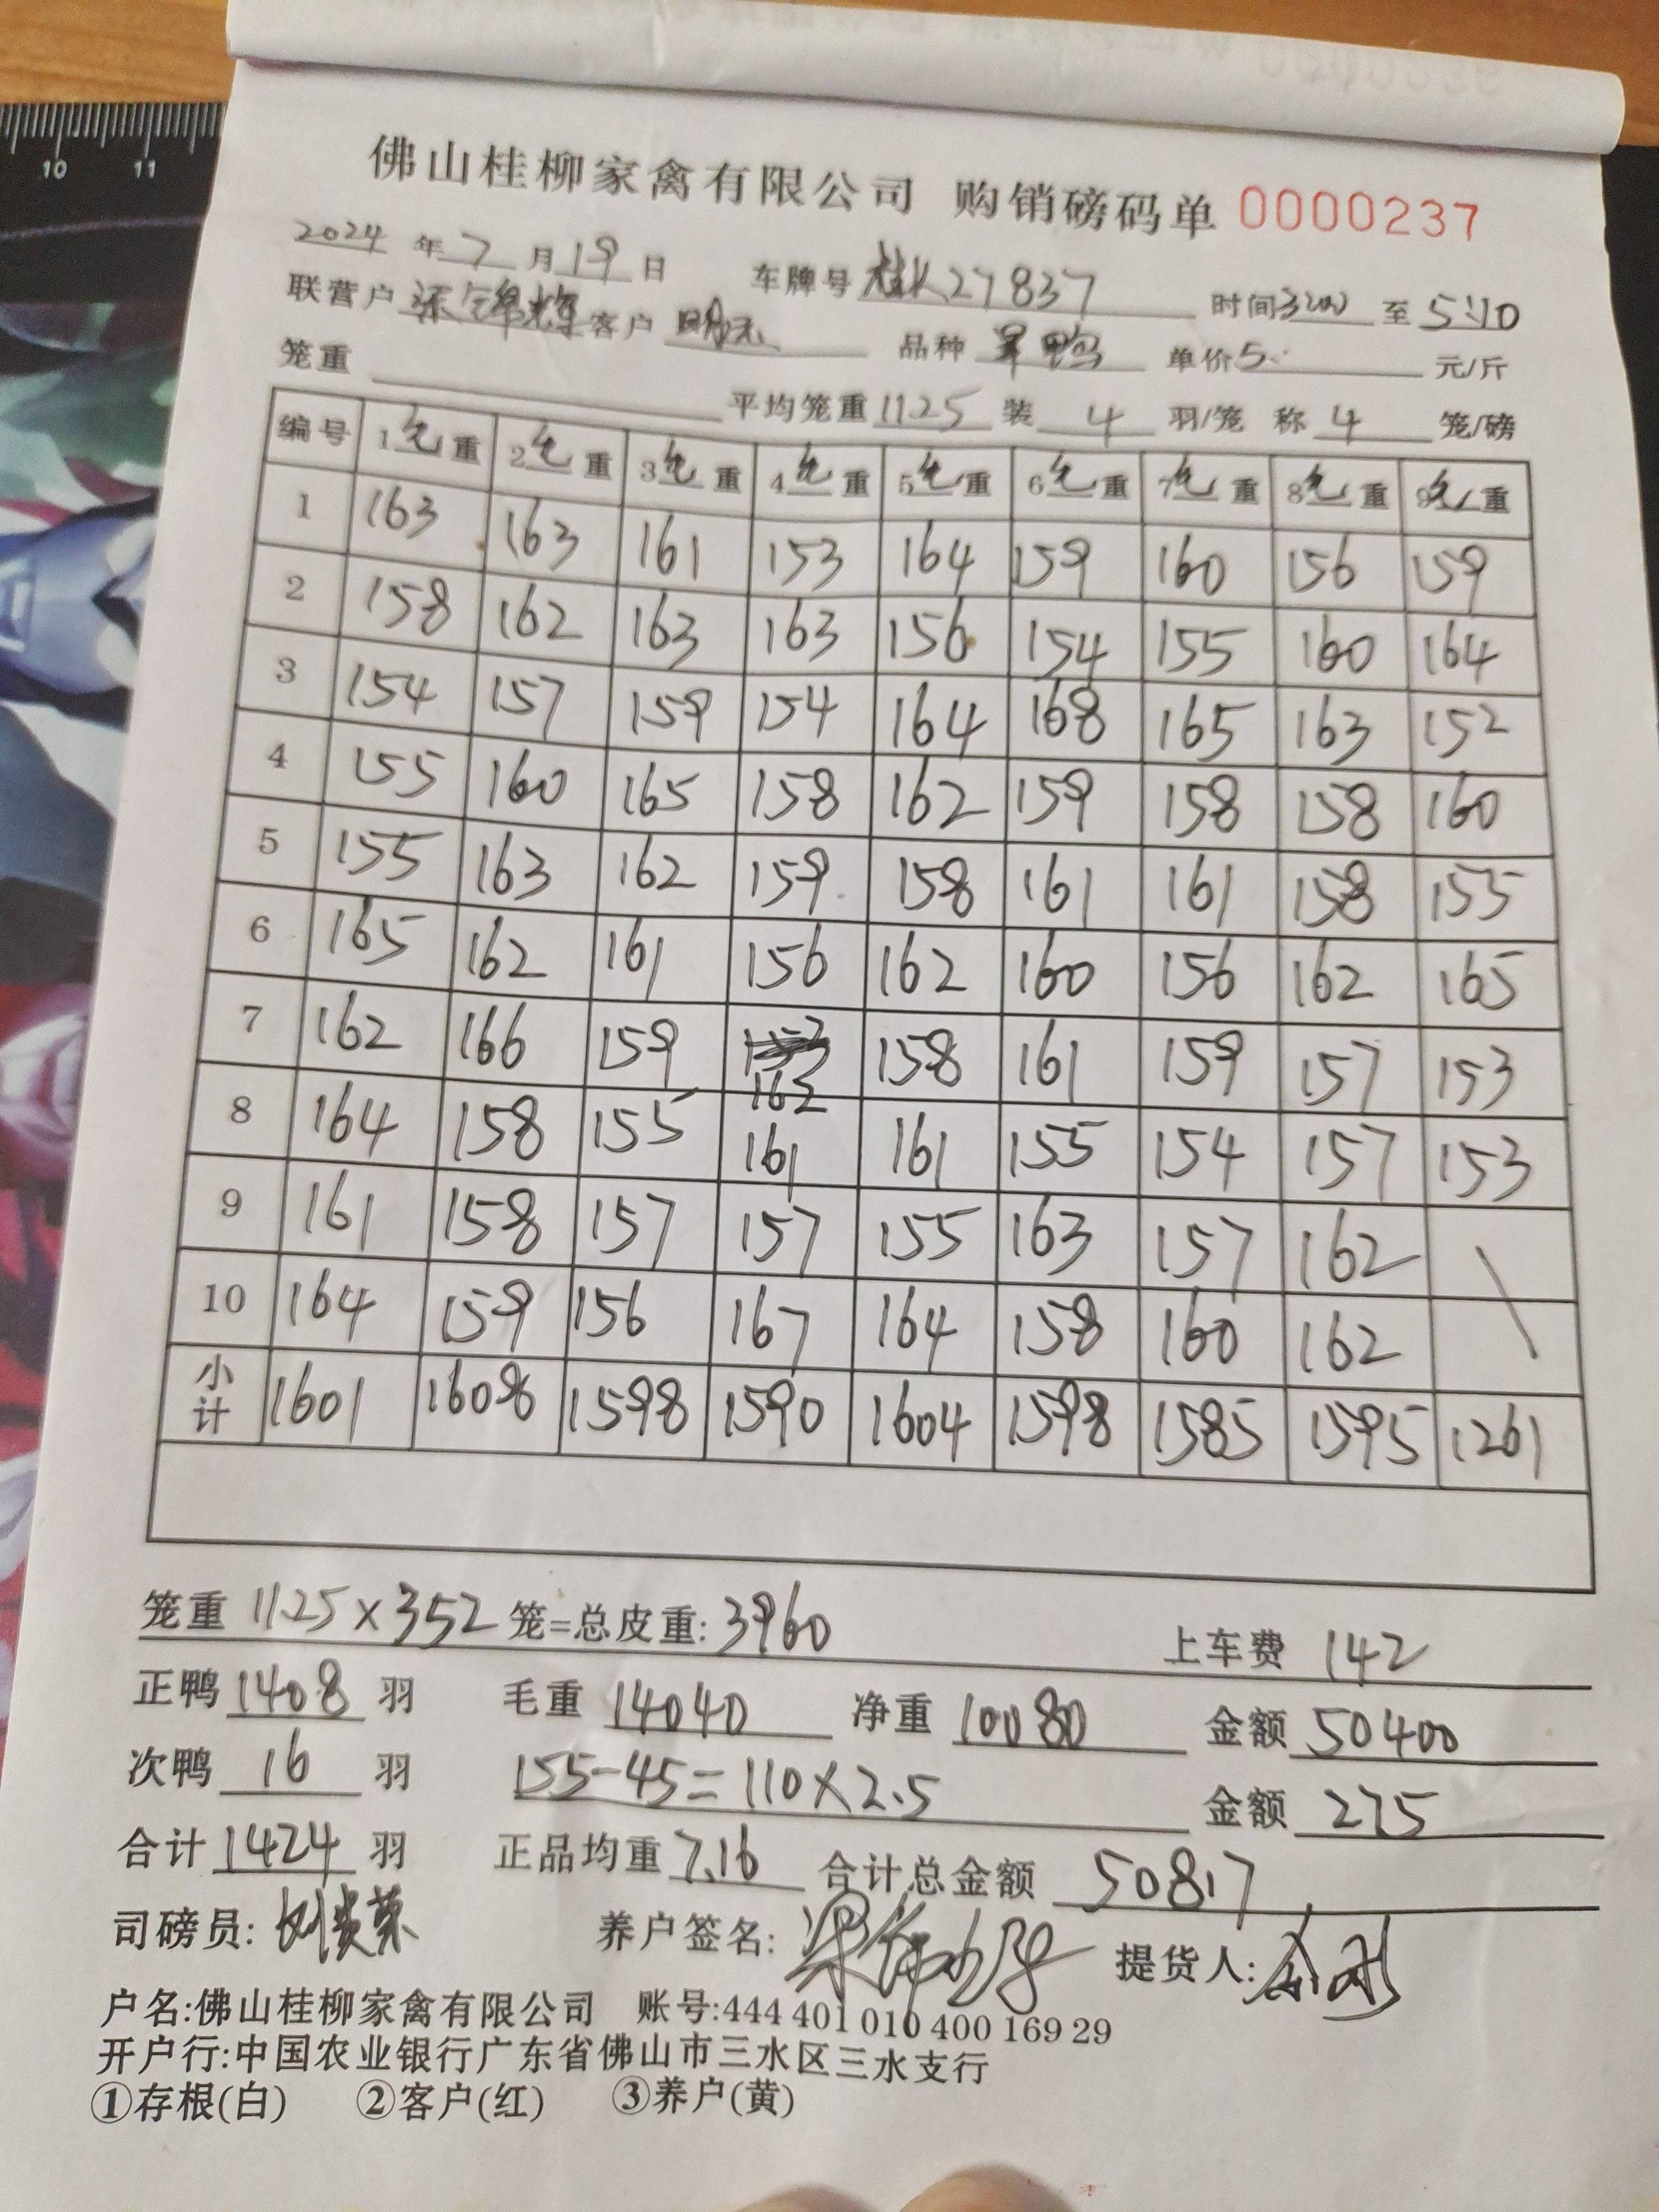 10 11
佛山桂柳家禽有限公司 购销磅码单 0000237
2024 年 7 月 19 日 车牌号 桂K27837 时间 3:00 至 5:10
联营户 客户 明志 品种 单价 5. 元/斤
笼重 平均笼重 11.25 装 4 羽/笼 称 4 笼/磅
编号 1毛重 2毛重 3毛重 4毛重 5毛重 6毛重 7毛重 8毛重 9毛重
1 163 163 161 153 164 159 160 156 159
2 158 162 163 163 156 154 155 160 164
3 154 157 159 154 164 168 165 163 152
4 155 160 165 158 162 159 158 158 160
5 155 163 162 159 158 161 161 158 155
6 165 162 161 156 162 160 156 162 165
7 162 166 159 162 158 161 159 157 153
8 164 158 155 161 161 155 154 157 153
9 161 158 157 157 155 163 157 162
10 164 159 156 167 164 158 160 162
小计 1601 1608 1598 1590 1604 1598 1585 1595 1261
笼重 11.25×352 笼=总皮重: 3960 上车费 142
正鸭 1408 羽 毛重 14040 净重 10080 金额 50400
次鸭 16 羽 155-45=110×2.5 金额 275
合计 1424 羽 正品均重 7.16 合计总金额 50817
司磅员: 养户签名: 提货人:
户名:佛山桂柳家禽有限公司 账号:444 401 010 400 169 29
开户行:中国农业银行广东省佛山市三水区三水支行
①存根(白) ②客户(红) ③养户(黄)